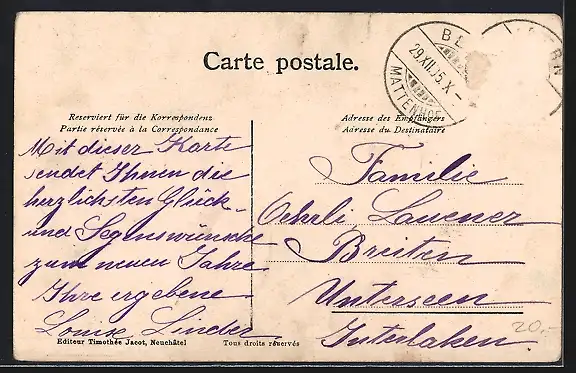 Carte postale.
BE
29.XII.05.X-
MATTENHOF
Reserviert für die Korrespondenz
Partie réservée à la Correspondance
Adresse des Empfängers
Adresse du Destinataire
Mit dieser Karte
sendet Ihnen die
herzlichsten Glück-
und Segenswünsche
zum neuen Jahre
Ihre ergebene
Louise Linder
Familie
Oehrli Lauener
Breiten
Unterseen
Interlaken
20,-
Editeur Timothée Jacot, Neuchâtel
Tous droits réservés